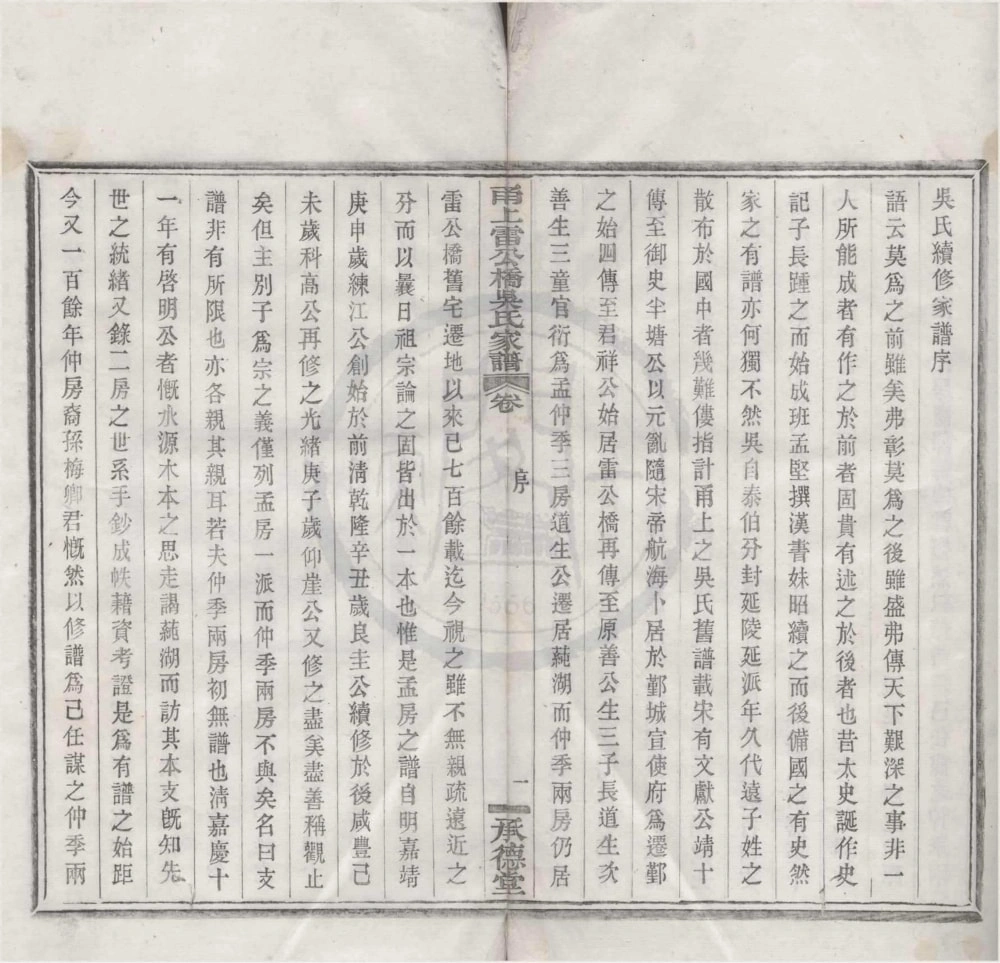 吳氏續修家譜序
語云莫爲之前雖美弗彰莫爲之後雖盛弗傳天下艱深之事非一
人所能成者有作之於前者固貴有述之於後者也昔太史誕作史
記子長踵之而始成班孟堅撰漢書妹昭續之而後備國之有史然
家之有譜亦何獨不然吳自泰伯分封延陵延派年久代遠子姓之
散布於國中者幾難僂指計甬上之吳氏舊譜載宋有文獻公靖十
傳至御史半塘公以元亂隨宋帝航海卜居於鄞城宣使府爲遷鄞
之始四傳至君祥公始居雷公橋再傳至原善公生三子長道生次
善生三童官衍爲孟仲季三房道生公遷居蒓湖而仲季兩房仍居
甬上雷公橋吳氏家譜 卷 序 一 承德堂
雷公橋舊宅遷地以來已七百餘載迄今視之雖不無親疏遠近之
分而以曩日祖宗論之固皆出於一本也惟是孟房之譜自明嘉靖
庚申歲練江公創始於前清乾隆辛丑歲良圭公續修於後咸豐己
未歲科高公再修之光緒庚子歲仰崖公又修之盡美盡善稱觀止
矣但主別子爲宗之義僅列孟房一派而仲季兩房不與矣名曰支
譜非有所限也亦各親其親耳若夫仲季兩房初無譜也清嘉慶十
一年有啓明公者慨水源木本之思走謁蒓湖而訪其本支旣知先
世之統緒又錄二房之世系手鈔成帙藉資考證是爲有譜之始距
今又一百餘年仲房裔孫梅卿君慨然以修譜爲己任謀之仲季兩